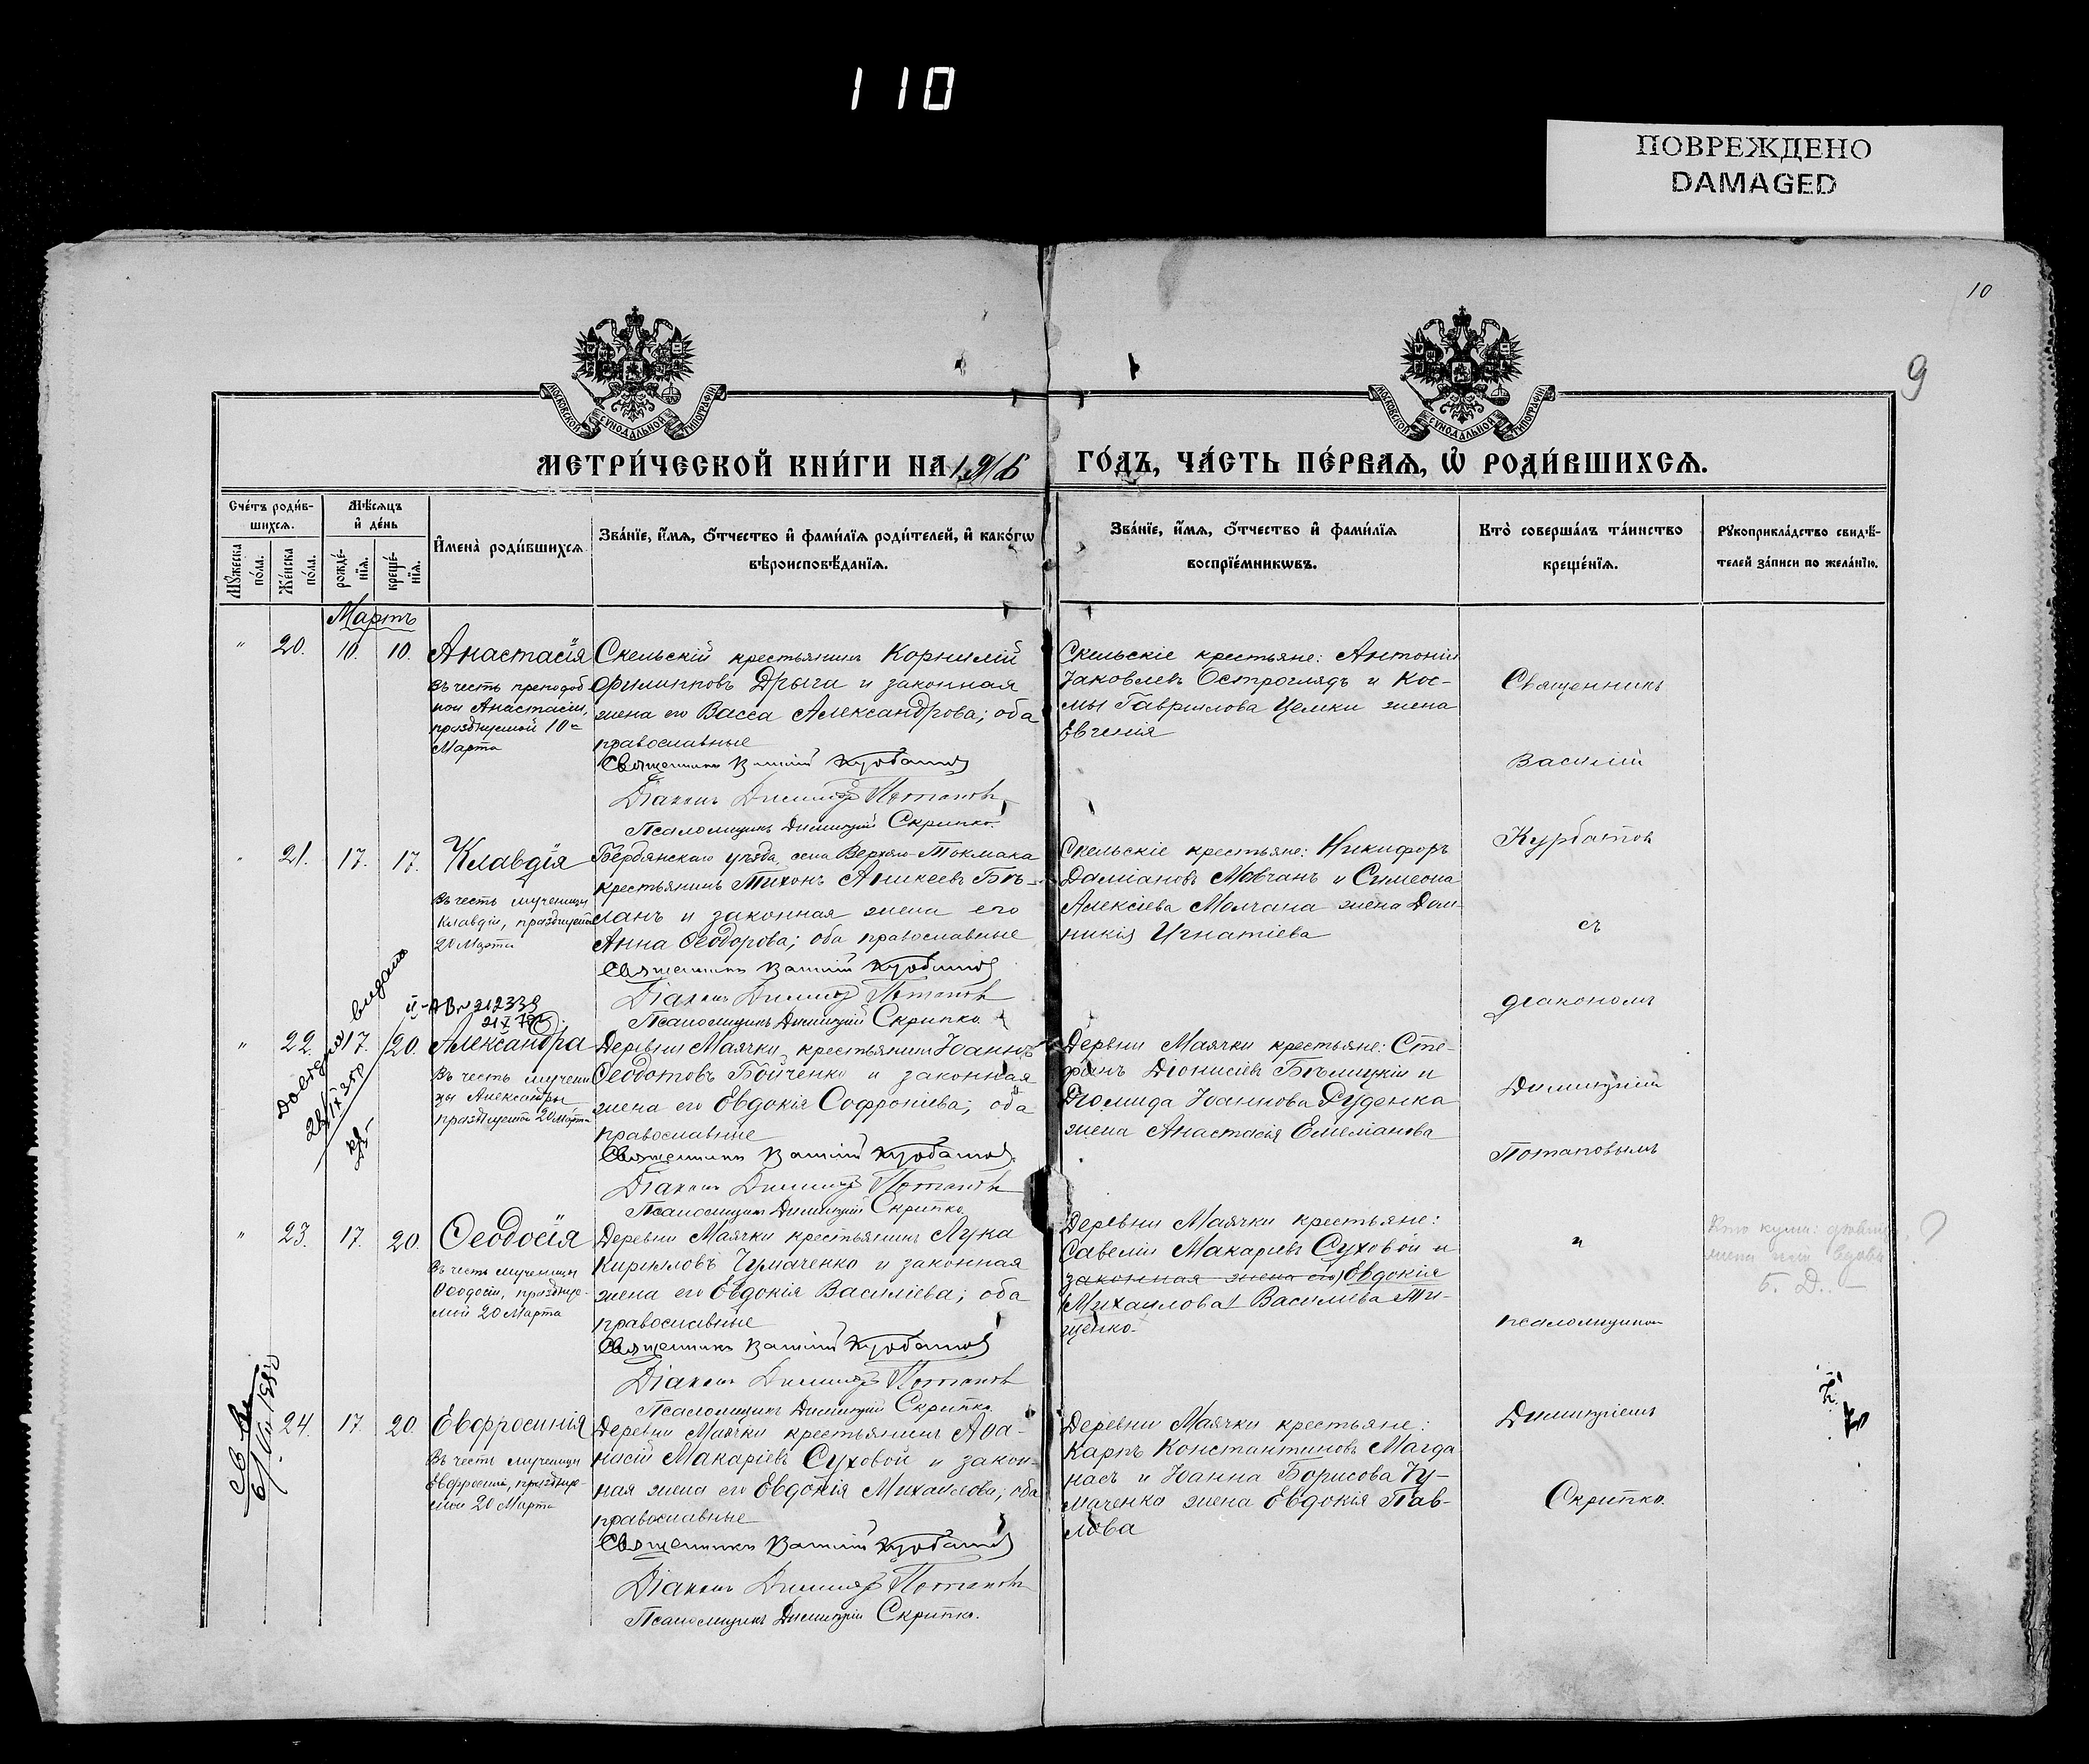 110
ПОВРЕЖДЕНО
DAMAGED
10
9
МОСКОВСКОЙ СѴНОДАЛЬНОЙ ТИПОГРАФІИ
МОСКОВСКОЙ СѴНОДАЛЬНОЙ ТИПОГРАФІИ
МЕТРИ́ЧЕСКОЙ КНИ́ГИ НА 1916 ГО́ДЪ, ЧА́СТЬ ПЕ́РВАѦ, Ѡ҆ РОДИ́ВШИХСѦ.
Сче́тъ роди́в-
шихсѧ.
Мѣ́сѧцъ
и҆ де́нь
Мꙋ́жеска по́ла.
Же́нска по́ла.
рожде́-
нїѧ.
креще́-
нїѧ.
И҆мена̀ роди́вшихсѧ
Зва́нїе, и҆́мѧ, ѻ҆́тчество и҆ фами́лїѧ роди́телей, и҆ како́гѡ
вѣроисповѣ́данїѧ.
Зва́нїе, и҆́мѧ, ѻ҆́тчество и҆ фами́лїѧ
воспрїе́мникѡвъ.
Кто̀ соверша́лъ та́инство
креще́нїѧ.
Рꙋкоприкла́дство свидѣ́-
телей за́писи по жела́нїю.
Мартъ
" 20. 10. 10. Анастасія
Въ честь преподоб-
ной Анастасіи,
празднуемой 10-с
Марта
Скельскій крестьянинъ Корнилій
Филипповъ Дрыга и законная
жена его Васса Александрова; оба
православные
Священникъ Василій Курбатовъ
Діаконъ Димитрій Потаповъ
Псаломщикъ Димитрій Скрипко.
Скельскіе крестьяне: Антоній
Іаковлевъ Остроглядъ и Кос-
мы Гаврилова Цемки жена
Евгенія
Священникъ
Василій
Курбатовъ
съ
діакономъ
Димитріемъ
Потаповымъ
и
псаломщикомъ
Димитріемъ
Скрипко.
" 21. 17. 17. Клавдія
Въ честь мученицы
Клавдіи, празднуемой
20 Марта
Бердянскаго уѣзда, села Верхняго-Токмака
крестьянинъ Тихонъ Аникеевъ Бѣ-
ланъ и законная жена его
Анна Ѳеодорова; оба православные
Священникъ Василій Курбатовъ
Діаконъ Димитрій Потаповъ
Псаломщикъ Димитрій Скрипко.
Скельскіе крестьяне: Никифоръ
Даміановъ Мовчанъ и Симеона
Алексіева Молчана жена Дом-
никія Игнатіева
видана
212339
" 22. 17. 20. Александра
Въ честь мучени-
цы Александры
празднуемой 20 Марта
Деревни Маячки крестьянинъ Іоаннъ
Ѳеодотовъ Бойченко и законная
жена его Евдокія Софроніева; оба
православные
Священникъ Василій Курбатовъ
Діаконъ Димитрій Потаповъ
Псаломщикъ Димитрій Скрипко.
Деревни Маячки крестьяне: Сте-
фанъ Діонисіевъ Бѣлицкій и
Діомида Іоаннова Руденка
жена Анастасія Емеліанова
" 23. 17. 20. Ѳеодосія
Въ честь мученицы
Ѳеодосіи, празднуе-
мой 20 Марта
Деревни Маячки крестьянинъ Лука
Кирилловъ Чумаченко и законная
жена его Евдокія Василіева; оба
православные
Священникъ Василій Курбатовъ
Діаконъ Димитрій Потаповъ
Псаломщикъ Димитрій Скрипко.
Деревни Маячки крестьяне:
Савелій Макаріевъ Суховой и
законная жена его Евдокія
Михаилова Василіева Ти-
щенко.
Б. Д.
24. 17. 20. Евфросинія
Въ честь мученицы
Евфросиніи, празднуе-
мой 20 Марта
Деревни Маячки крестьянинъ Аѳа-
насій Макаріевъ Суховой и закон-
ная жена его Евдокія Михаилова; оба
православные
Священникъ Василій Курбатовъ
Діаконъ Димитрій Потаповъ
Псаломщикъ Димитрій Скрипко.
Деревни Маячки крестьяне:
Карпъ Константиновъ Магда-
насъ и Іоанна Борисова Чу-
маченка жена Евдокія Пав-
лова